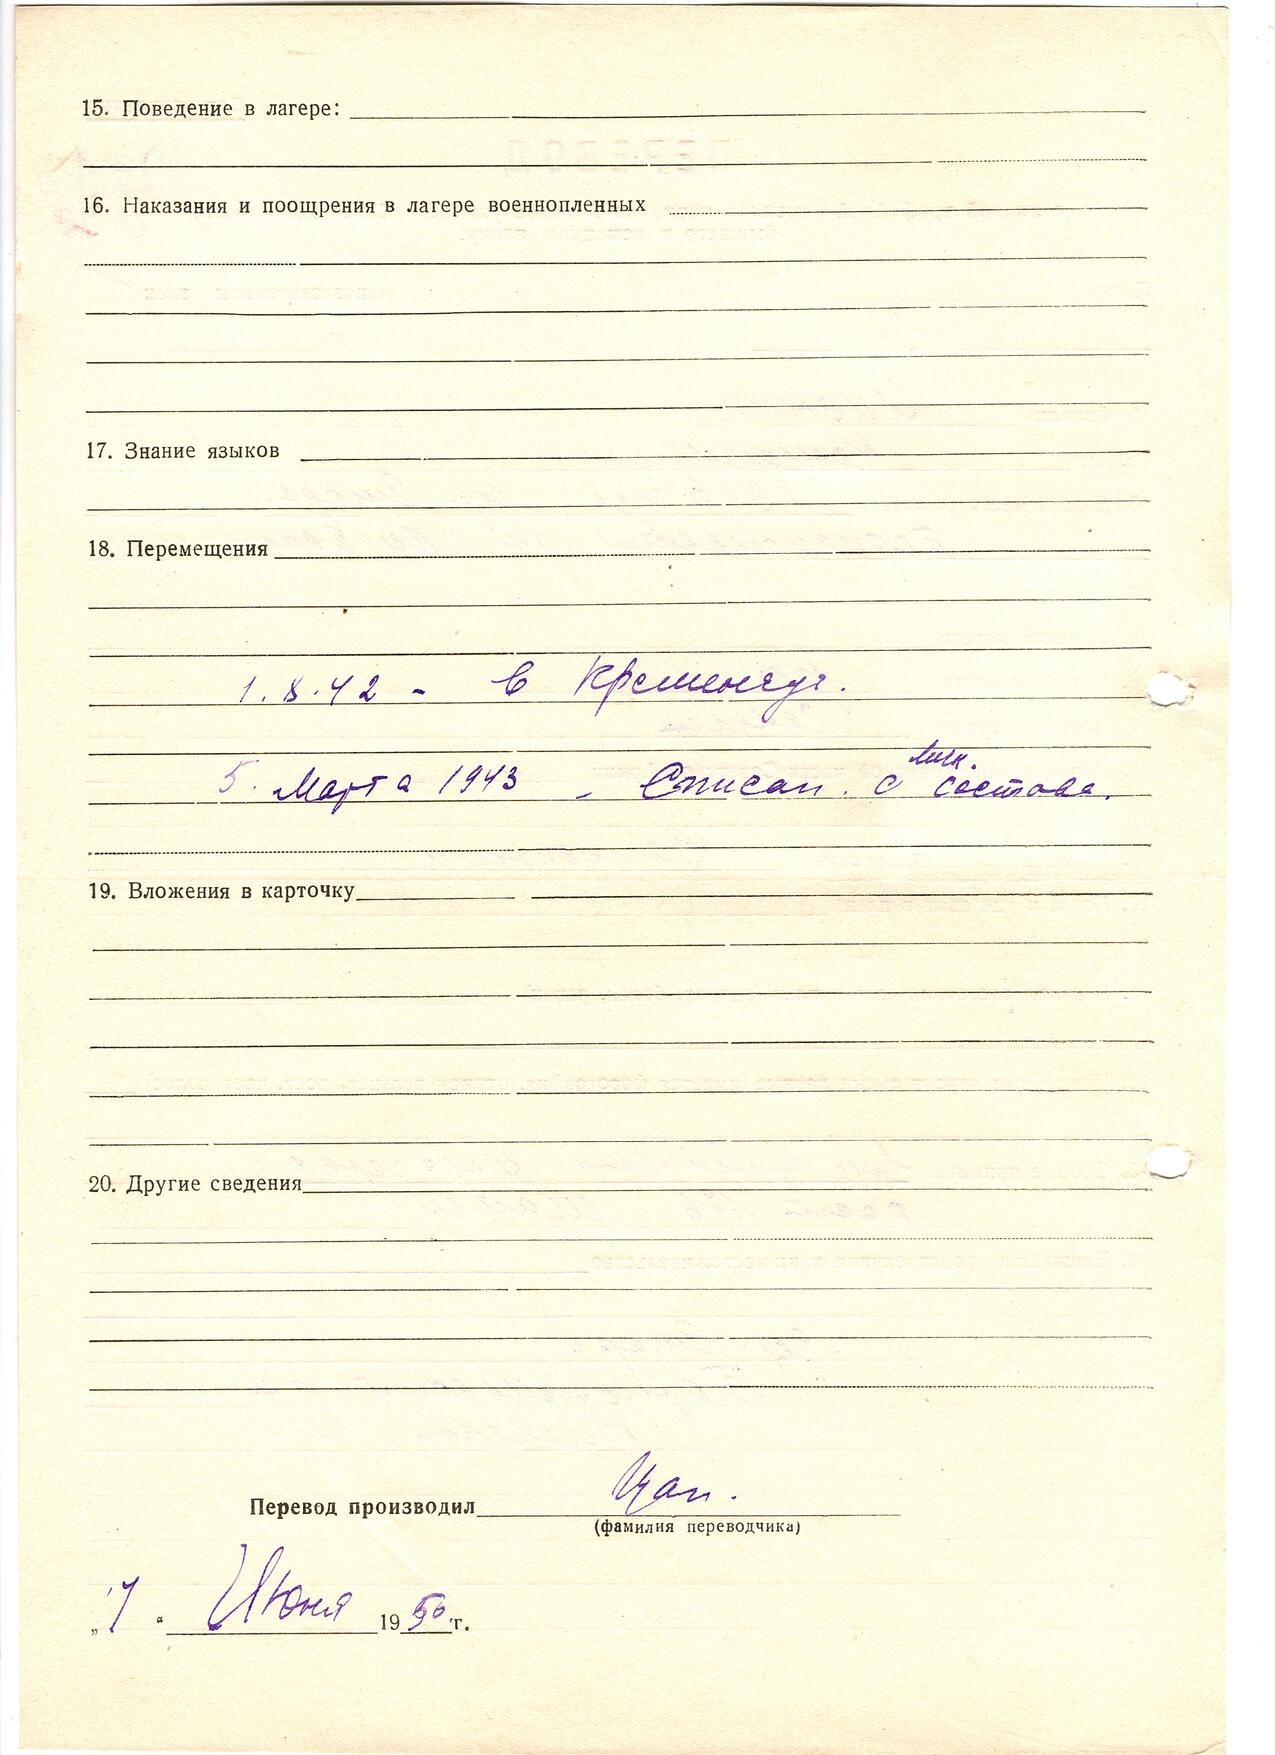 15. Поведение в лагере:
16. Наказания и поощрения в лагере военнопленных
17. Знание языков
18. Перемещения
1.8.42 - в Кременчуг.
5. Марта 1943 - Списан. с личн. состава.
19. Вложения в карточку
20. Другие сведения
Перевод производил
(фамилия переводчика)
„7“ Июня 1950 г.